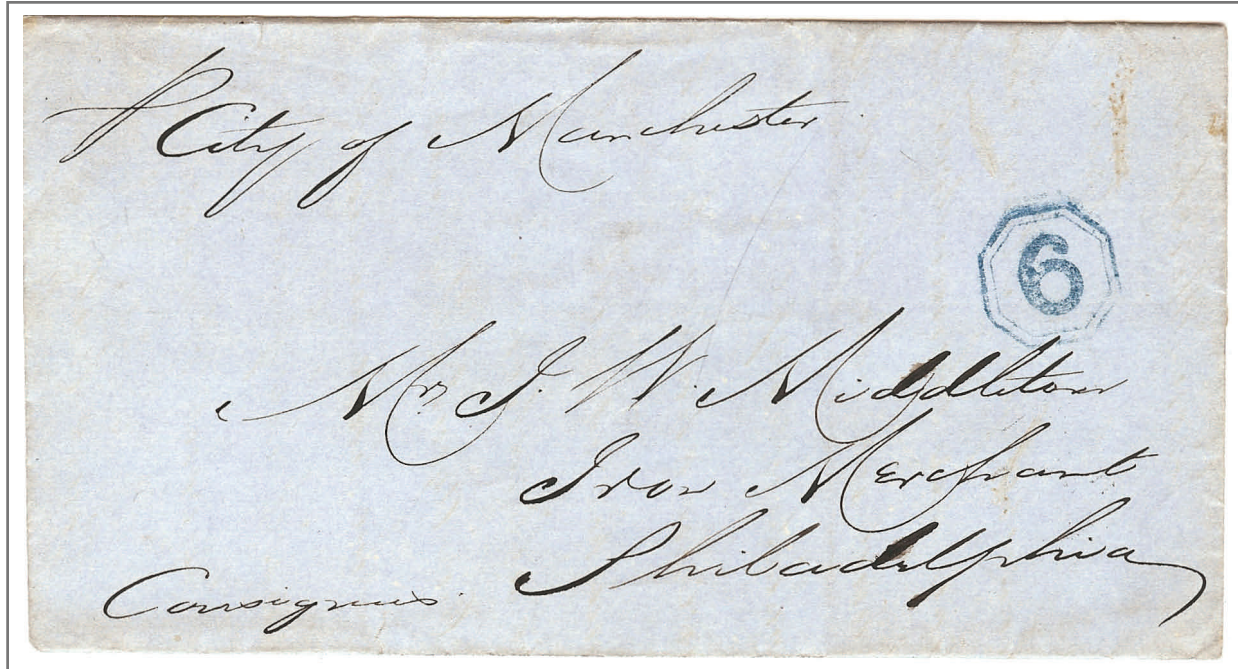 P City of Manchester
6
Mr J. W. Middleton
Iron Merchant
Philadelphia
Consignees